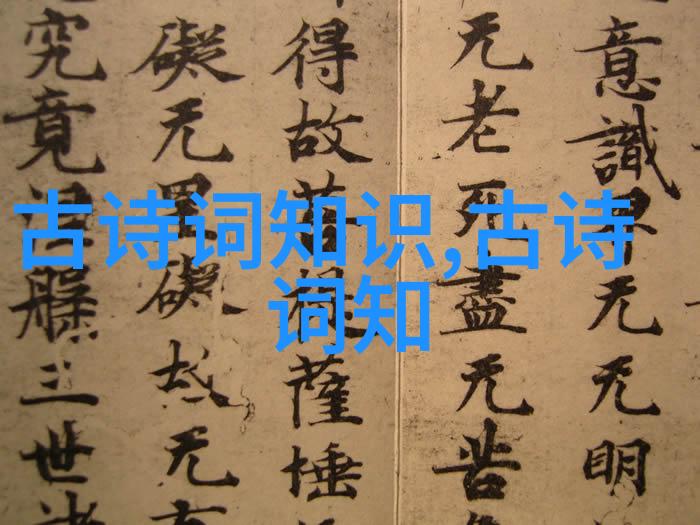 古诗词知识,古诗
词知
意識界无无明
无老死盡无苦
得故菩提薩埵
礙无罣礙故无有
究竟涅槃三世諸